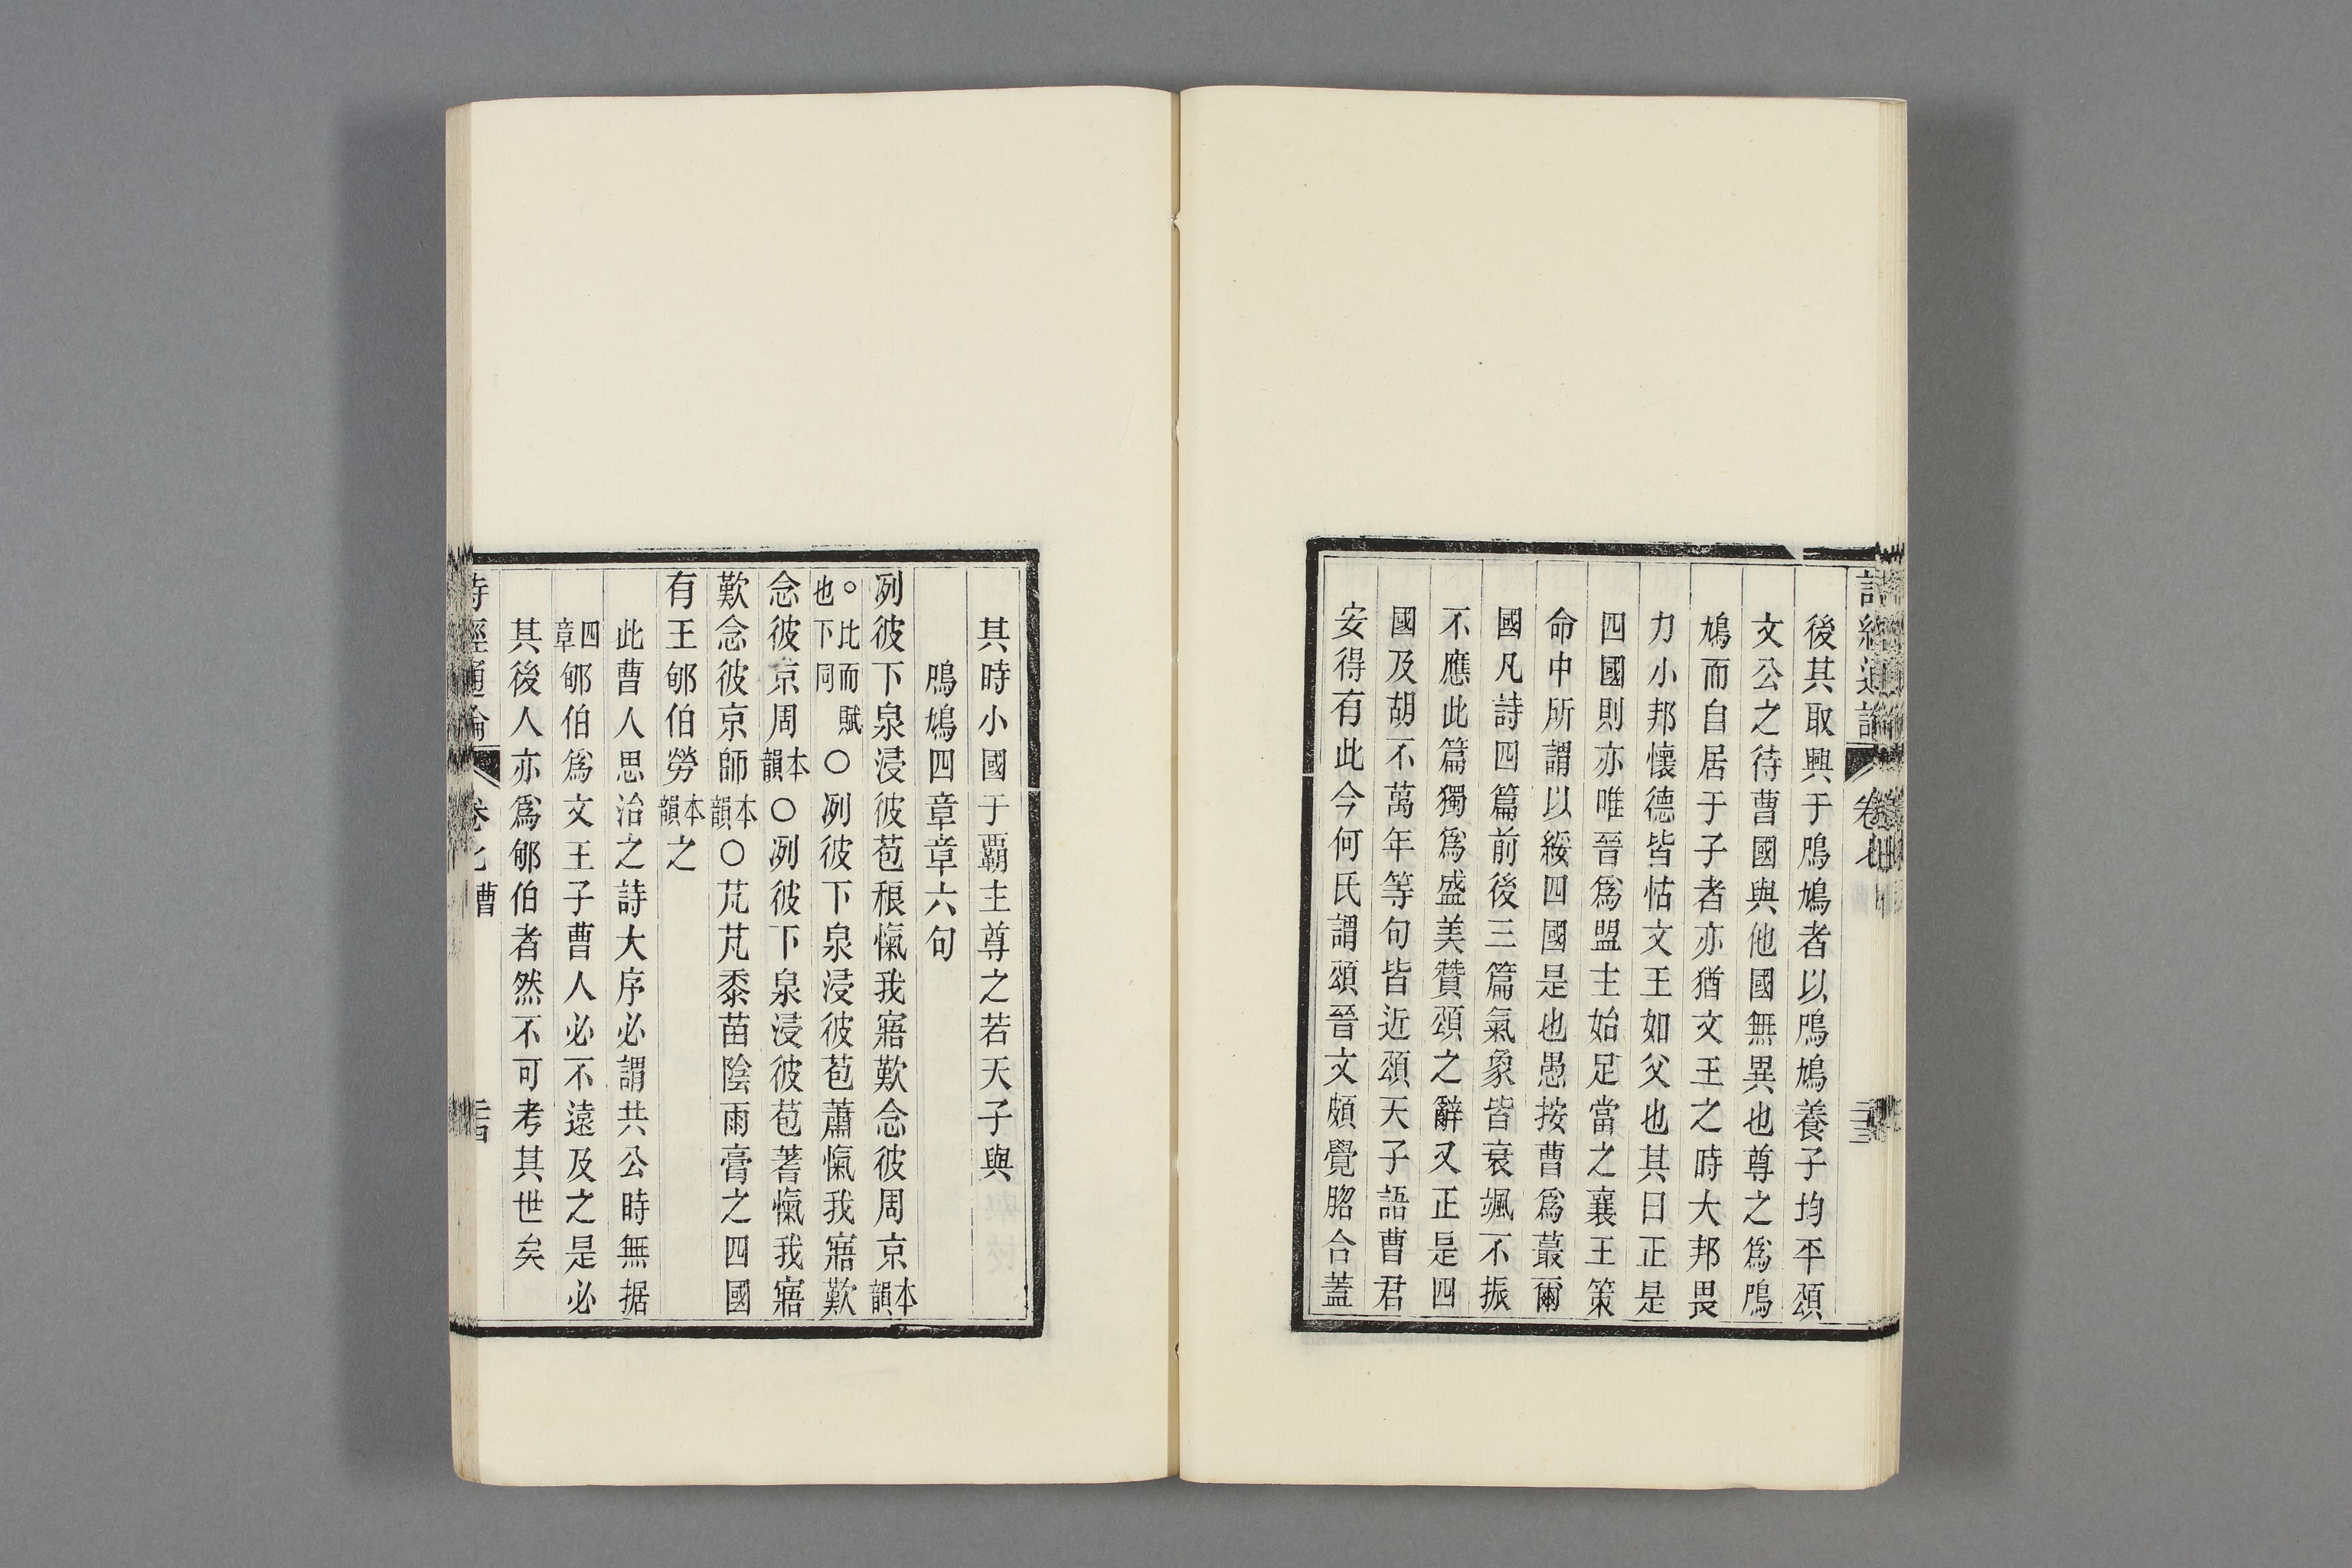 詩經通論 卷七
後其取興于鳲鳩者以鳲鳩養子均平頌
文公之待曹國與他國無異也尊之爲鳲
鳩而自居于子者亦猶文王之時大邦畏
力小邦懷德皆怙文王如父也其曰正是
四國則亦唯晉爲盟主始足當之襄王策
命中所謂以綏四國是也愚按曹爲蕞爾
國凡詩四篇前後三篇氣象皆衰颯不振
不應此篇獨爲盛美贊頌之辭又正是四
國及胡不萬年等句皆近頌天子語曹君
安得有此今何氏謂頌晉文頗覺脗合蓋
其時小國于覇主尊之若天子與
鳲鳩四章章六句
冽彼下泉浸彼苞稂愾我寤歎念彼周京本韻
○比而賦也下同○冽彼下泉浸彼苞蕭愾我寤歎
念彼京周本韻○冽彼下泉浸彼苞蓍愾我寤
歎念彼京師本韻○芃芃黍苗陰雨膏之四國
有王郇伯勞本韻之
此曹人思治之詩大序必謂共公時無据
四章郇伯爲文王子曹人必不遠及之是必
其後人亦爲郇伯者然不可考其世矣
詩經通論 卷七 曹 二十四